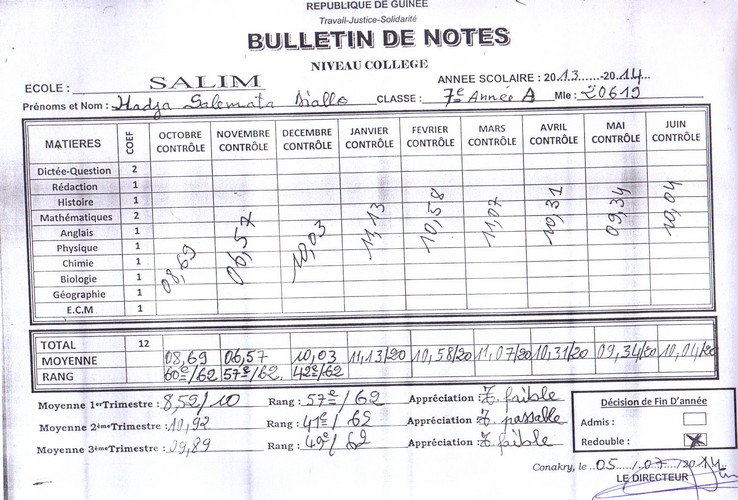 REPUBLIQUE DE GUINEE
Travail-Justice-Solidarité
BULLETIN DE NOTES
NIVEAU COLLEGE
ECOLE : SALIM ANNEE SCOLAIRE : 2013......-2014...
Prénoms et Nom : Hadja Salemata Diallo CLASSE : 7e Année A Mle : 20619
MATIERES COEF OCTOBRE CONTRÔLE NOVEMBRE CONTRÔLE DECEMBRE CONTRÔLE JANVIER CONTRÔLE FEVRIER CONTRÔLE MARS CONTRÔLE AVRIL CONTRÔLE MAI CONTRÔLE JUIN CONTRÔLE
Dictée-Question 2
Rédaction 1
Histoire 1
Mathématiques 2
Anglais 1
Physique 1
Chimie 1
Biologie 1
Géographie 1
E.C.M 1
08,69 06,57 10,03 11,13 10,58 11,07 10,31 09,34 10,04
TOTAL 12
MOYENNE 08,69 06,57 10,03 11,13/20 10,58/20 11,07/20 10,31/20 09,34/20 10,04/20
RANG 60e/62 57e/62 42e/62
Moyenne 1erTrimestre : 8,52/10 Rang : 57e/62 Appréciation : T. faible
Moyenne 2èmeTrimestre : 10,92 Rang : 41e/62 Appréciation : T. passable
Moyenne 3èmeTrimestre : 09,89 Rang : 49e/62 Appréciation : T. faible
Décision de Fin D'année
Admis :
Redouble : X
Conakry, le 05...../07/2014
LE DIRECTEUR